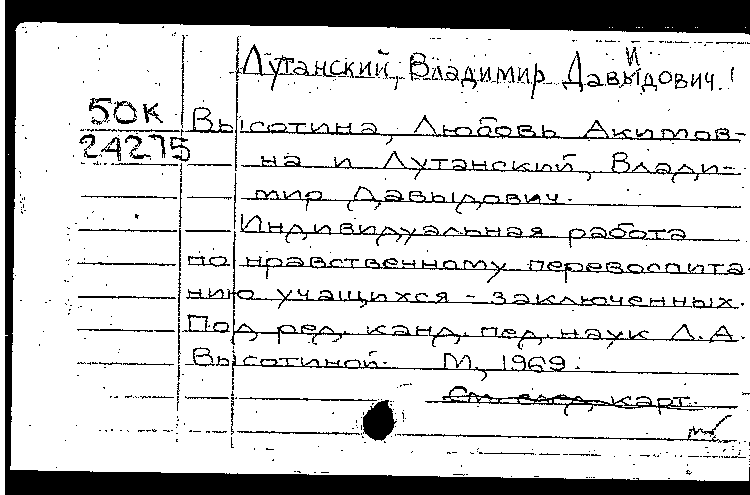 Лутанский, Владимир Давыдович.
и
50К
24275
Высотина, Любовь Акимов-
на и Лутанский, Влади-
мир Давыдович.
Индивидуальная работа
по нравственному перевоспита
нию учащихся - заключенных.
Под ред. канд. пед. наук Л.А.
Высотиной. М., 1969.
См. след. карт.